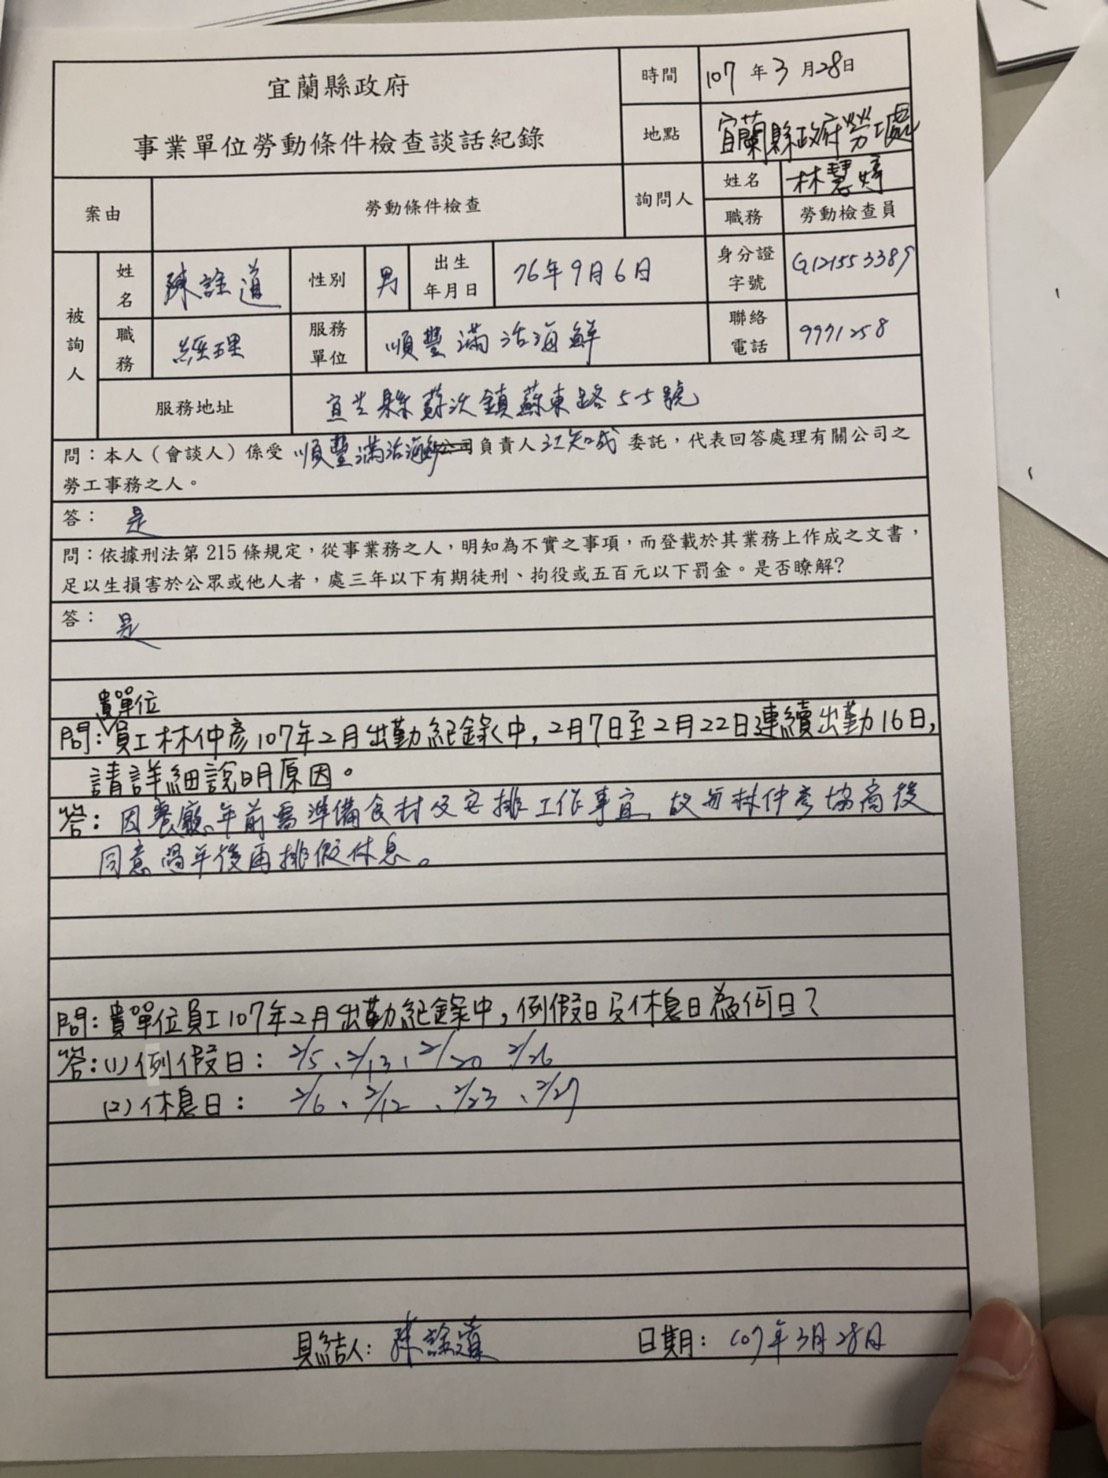 宜蘭縣政府
事業單位勞動條件檢查談話紀錄
時間 107年3月28日
地點 宜蘭縣政府勞工處
案由 勞動條件檢查
詢問人 姓名 林慧婷
職務 勞動檢查員
被詢人 姓名 陳詮道 性別 男 出生年月日 76年9月6日 身分證字號 G121553389
職務 經理 服務單位 順豐滿活海鮮 聯絡電話 9971258
服務地址 宜兰縣蘇澳鎮蘇東路55號
問：本人（會談人）係受 順豐滿活海鮮公司負責人江知成 委託，代表回答處理有關公司之
勞工事務之人。
答： 是
問：依據刑法第215條規定，從事業務之人，明知為不實之事項，而登載於其業務上作成之文書，
足以生損害於公眾或他人者，處三年以下有期徒刑、拘役或五百元以下罰金。是否瞭解?
答： 是
貴單位
問：員工林仲彥107年2月出勤紀錄中，2月7日至2月22日連續出勤16日，
請詳細說明原因。
答：因餐廳年前需準備食材及安排工作事宜，故與林仲彥協商後
同意過年後再排假休息。
問：貴單位員工107年2月出勤紀錄中，例假日及休息日為何日？
答：(1)例假日：2/5、2/13、2/20 2/26
(2)休息日：2/6、2/12、2/23、2/27
具結人：陳詮道 日期：107年3月28日